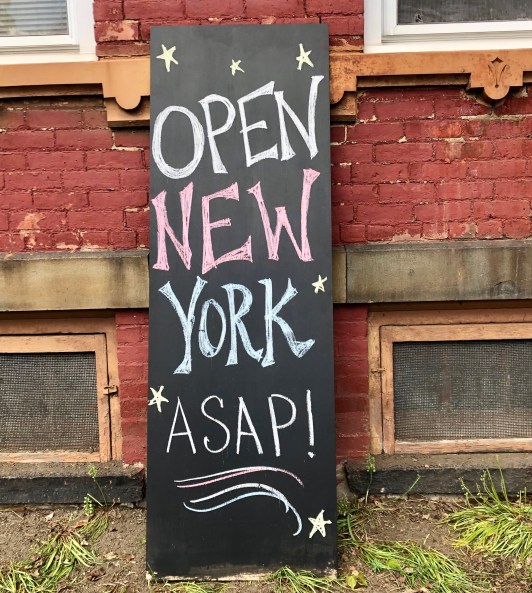 OPEN
NEW
YORK
ASAP!